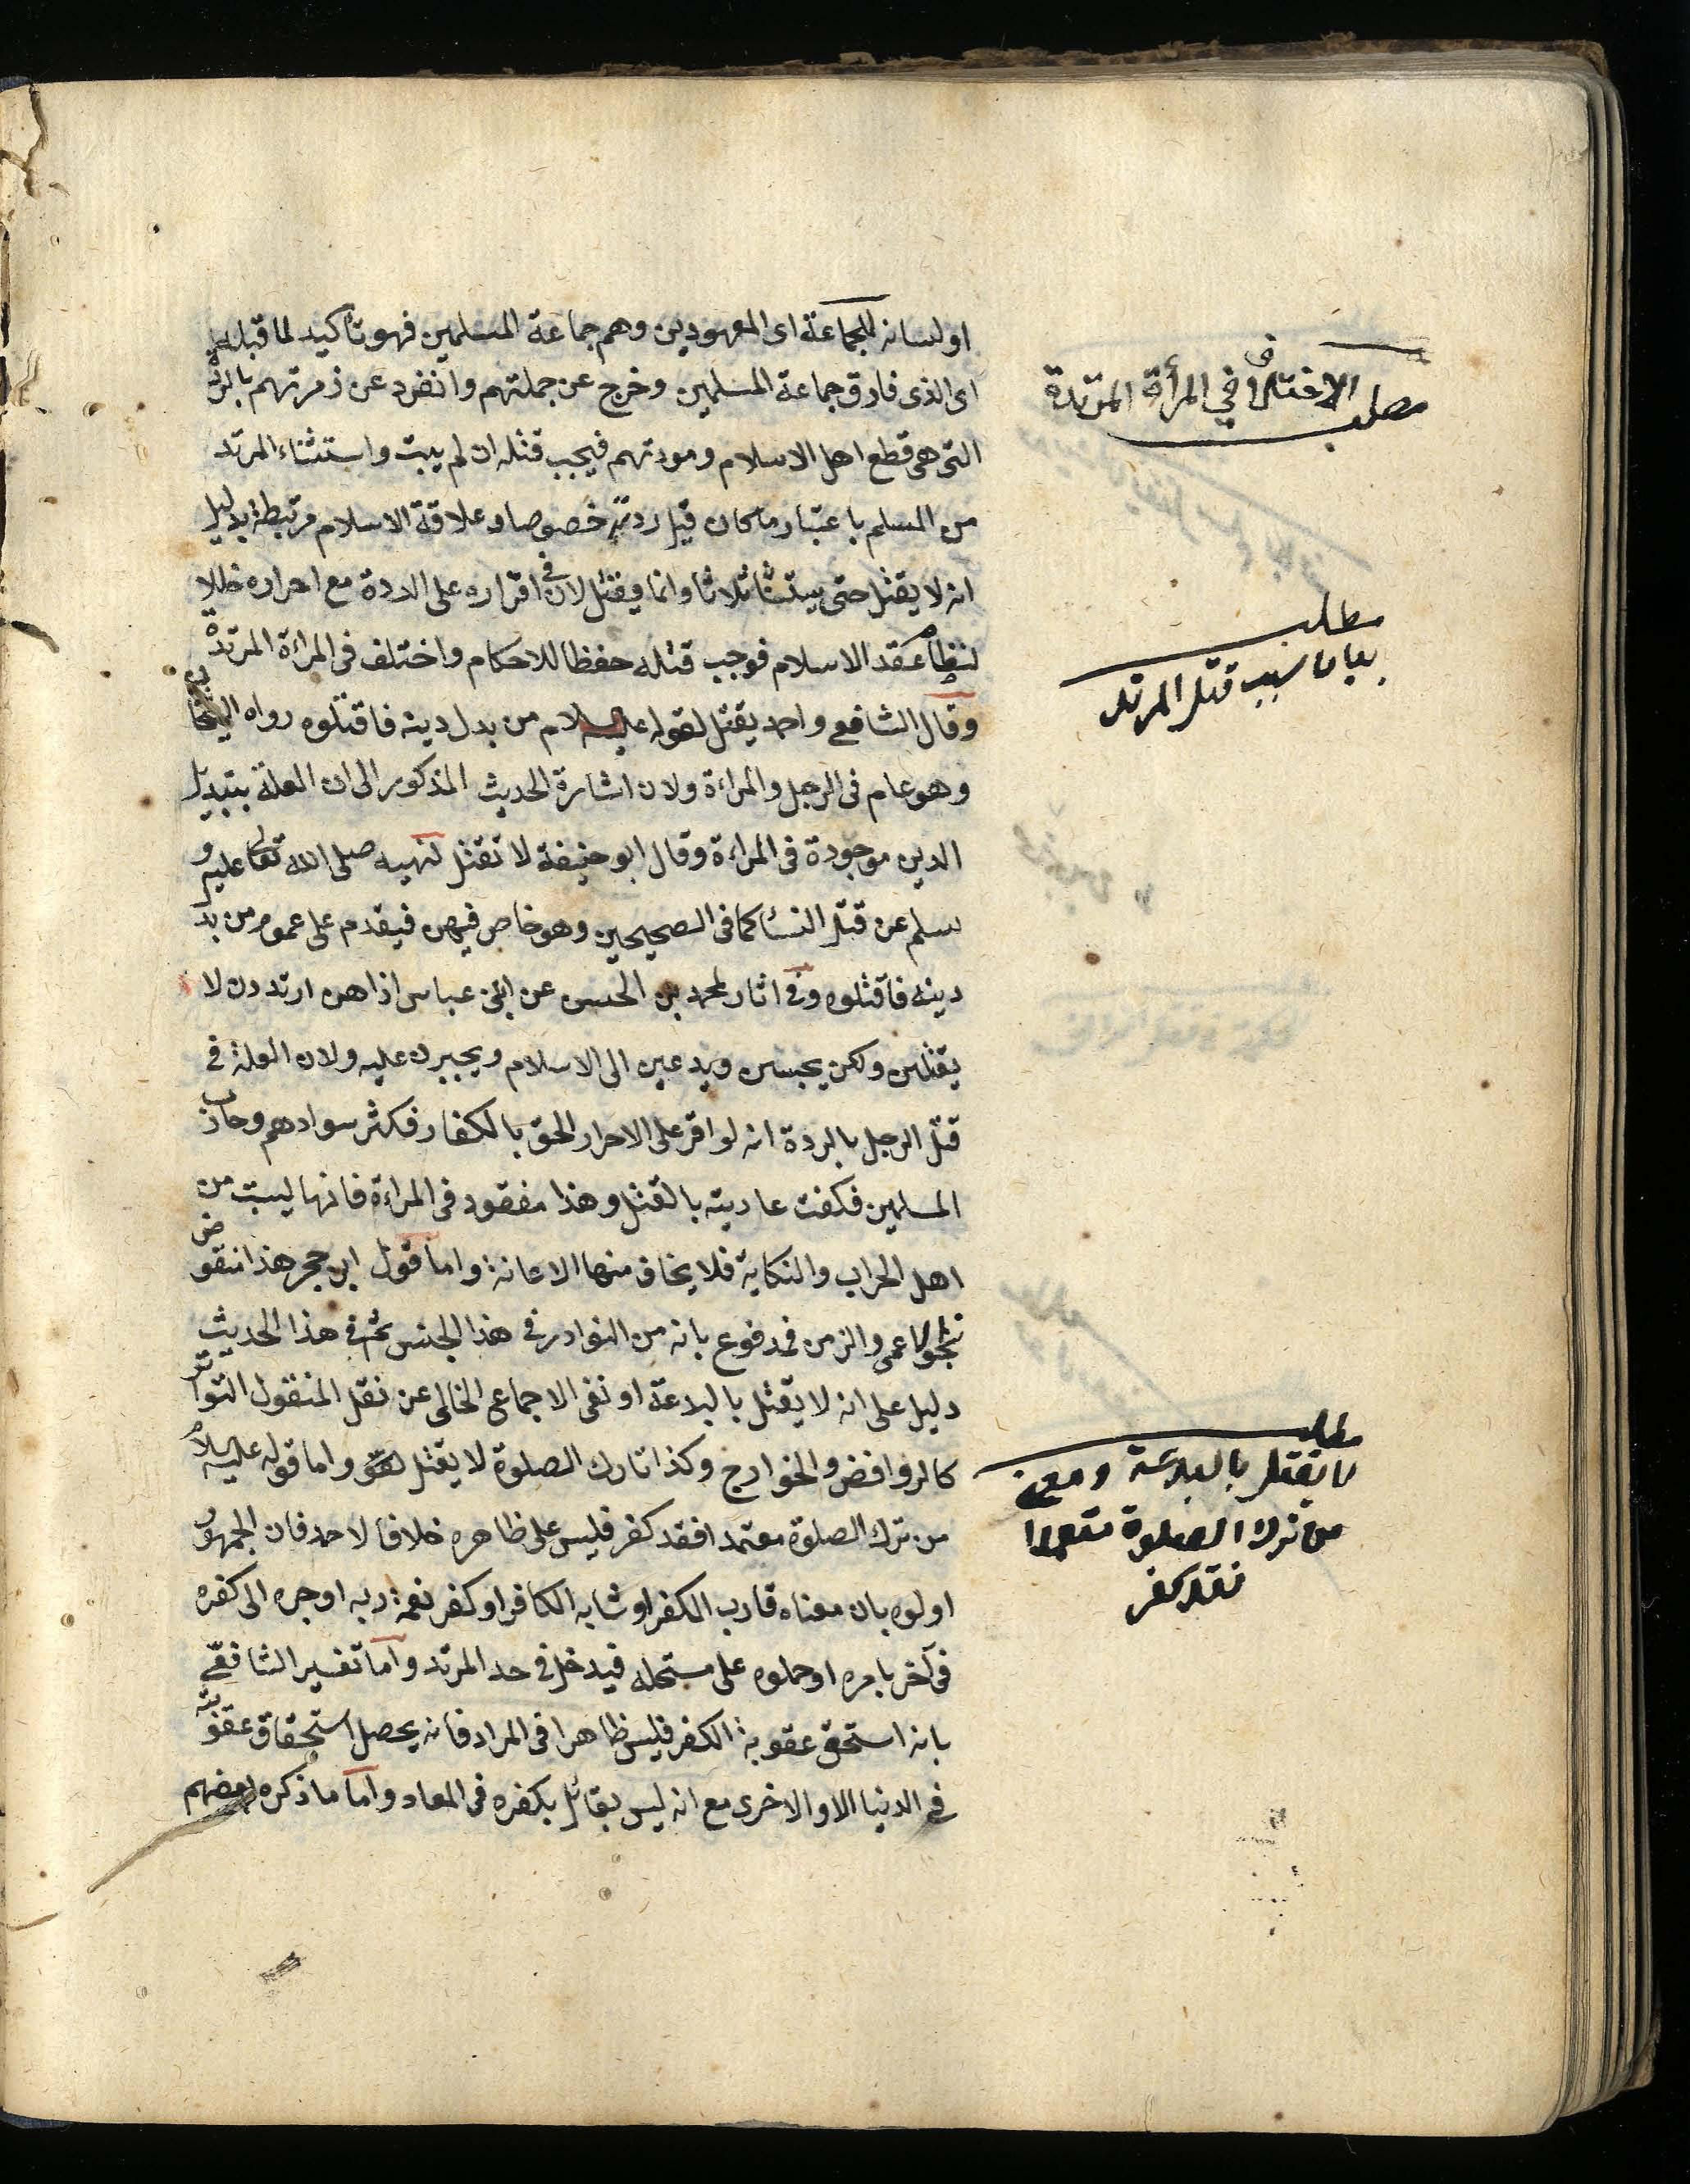 او لسانه للجماعة اى المعهودين وهم جماعة المسلمين فهو تاكيد لما قبله
اى الذى فارق جماعة المسلمين وخرج عن جملتهم وانفرد عن زمرتهم بالردة
التى هى قطع اهل الاسلام ومودتهم فيجب قتله ان لم يبت واستثناء المرتد
من المسلم باعتبار ما كان قبل ردته خصوصا وعلاقة الاسلام مرتبطة بدليل
انه لا يقتل حتى يستتاب ثلاثا وانما يقتل لان فى اقراره على الردة مع احراره خللا
لنظام عقد الاسلام فوجب قتله حفظا للاحكام واختلف فى المراة المرتدة
وقال الشافعى واحمد يقتل لقوله عليه السلام من بدل دينه فاقتلوه رواه البخارى
وهو عام فى الرجل والمراءة ولان اشارة الحديث المذكور الى ان العلة بتبديل
الدين موجودة فى المراءة وقال ابو حنيفة لا تقتل لنهيه صلى الله تعالى عليه و
سلم عن قتل النسا كما فى الصحيحين وهو خاص فيهن فيقدم على عموم من بدل
دينه فاقتلوه وفى اثار لمحمد بن الحسن عن ابن عباس اذا هن ارتددن لا
يقتلن ولكن يحبسن ويدعين الى الاسلام ويجبرن عليه ولان العلة فى
قتل الرجل بالردة انه لو اقر على الاحرار لحق بالكفار فكثر سوادهم وحارب
المسلمين فكفت عاديته بالقتل وهذا مفقود فى المراءة فانها ليست من
اهل الحراب والنكاية فلا يخاف منها الاعانة واما قول ابن حجر هذا منقوض
بنحو الاعمى والزمن فمدفوع بانه من النوادر فى هذا الجنس ثم فى هذا الحديث
دليل على انه لا يقتل بالبدعة او نفى الاجماع الخالى عن نقل المنقول التواتر
كالروافض والخوارج وكذا تارك الصلوة لا يقتل واما قوله عليه السلام
من ترك الصلوة معتمدا فقد كفر فليس على ظاهره خلافا لاحمد فان الجمهور
اولوه بان معناه قارب الكفر او شابه الكافر او كفر نعمة ربه او جره الى كفره
فى آخر بامره او حملوه على مستحله فيدخل فى حد المرتد واما تفسير الشافعى
بانه استحق عقوبة الكفر فليس ظاهرا فى المراد فانه يحصل استحقاق عقوبته
فى الدنيا الا والاخرى مع انه ليس بقائل بكفره فى المعاد واما ما ذكره بعضهم
مطلب الاختلاف في المرأة المرتدة
مطلب
بيان سبب قتل المرتد
مطلب
لا يقتل بالبدعة ومعنى
من ترك الصلوة متعمدا
فقد كفر